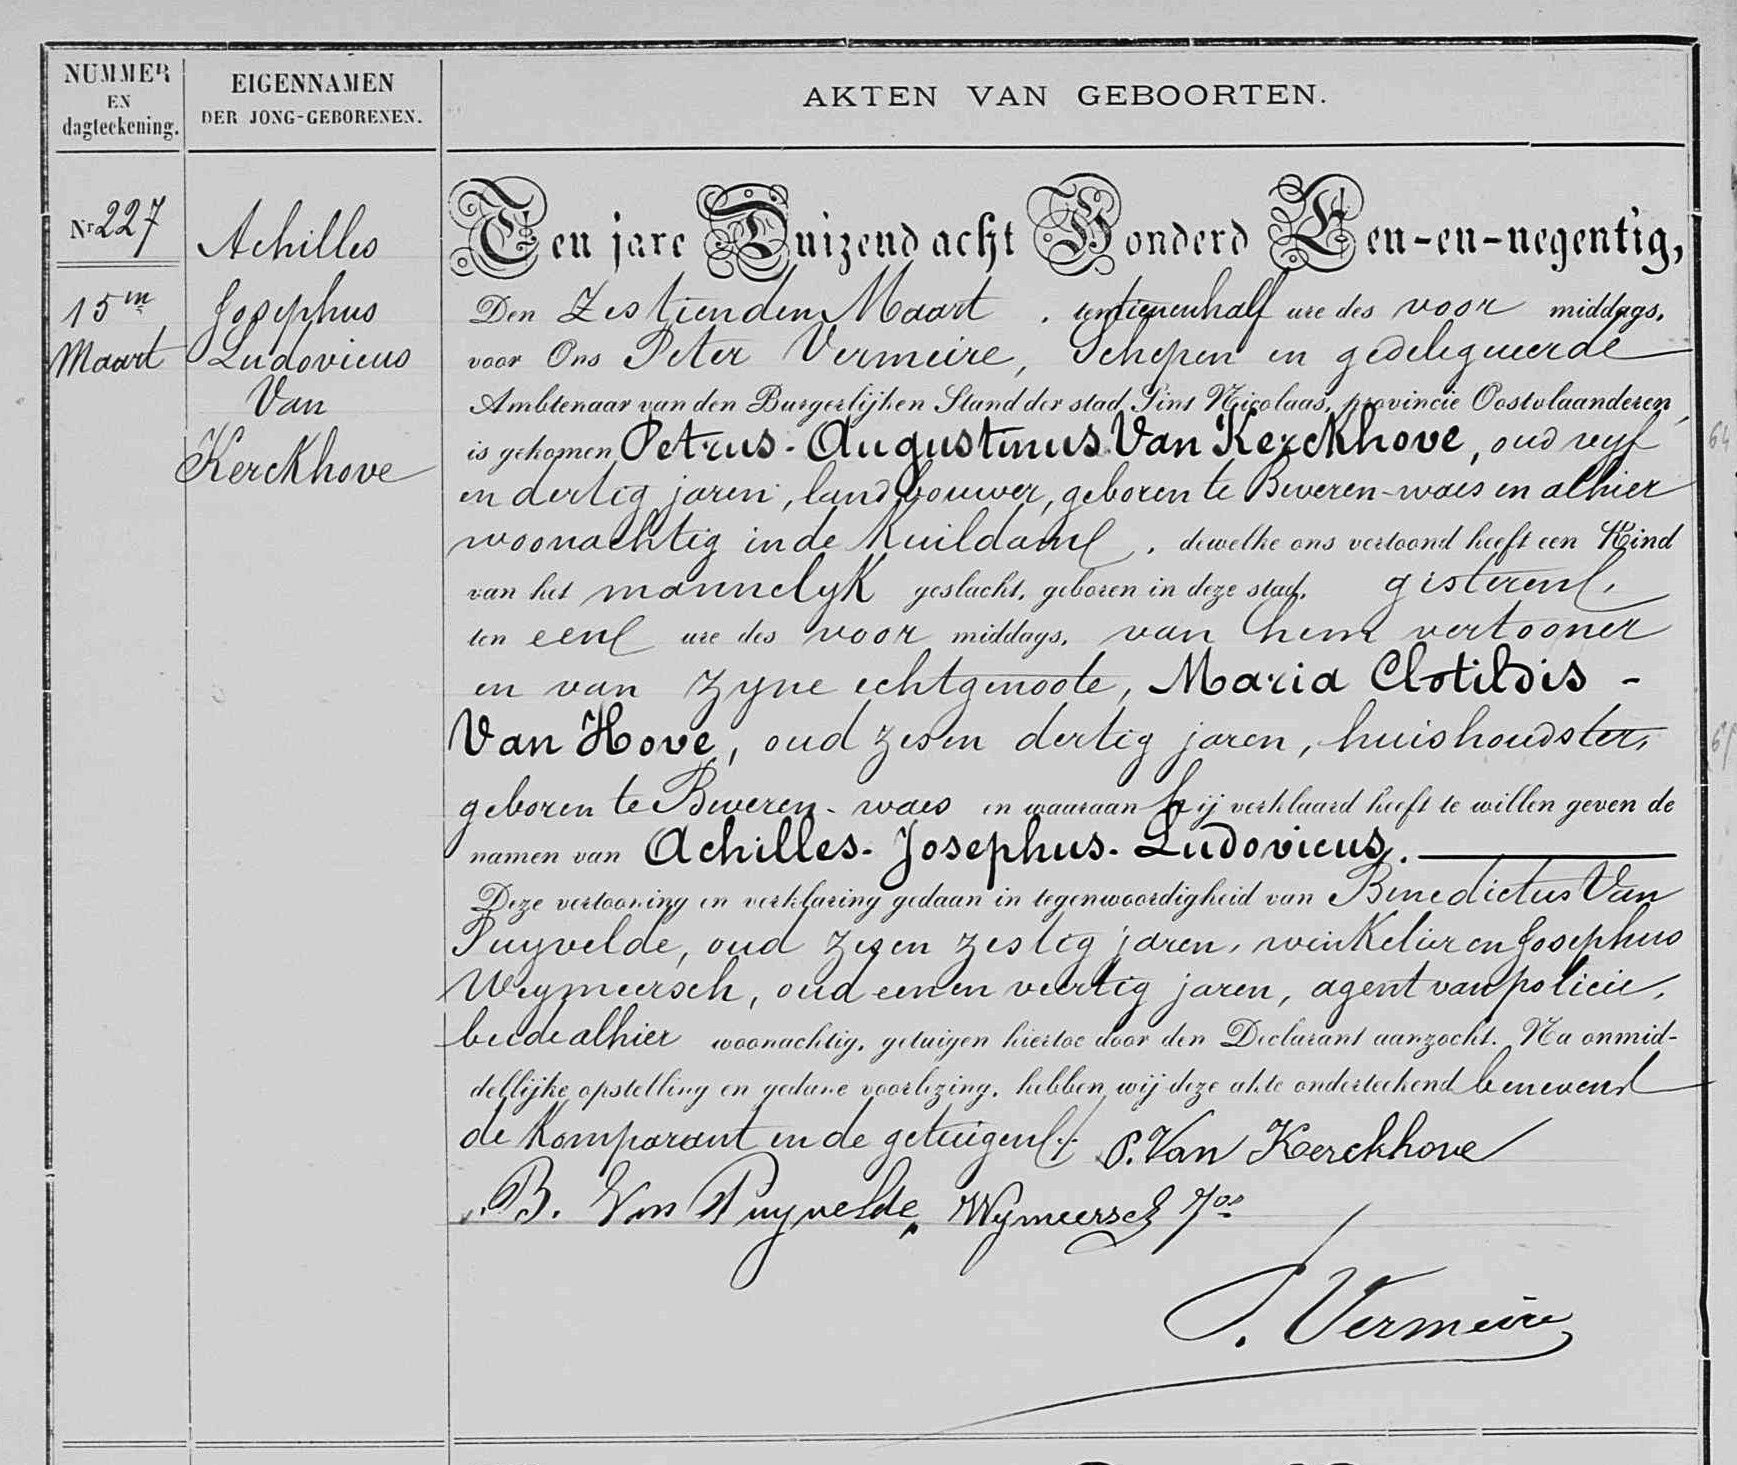 NUMMER
EN
dagteekening.
EIGENNAMEN
DER JONG-GEBORENEN.
AKTEN VAN GEBOORTEN.
Nr 227
15en
Maart
Achilles
Josephus
Ludovicus
Van
Kerckhove
Ten jare Duizend acht Honderd Een-en-negentig,
Den Zestienden Maart . ten tienenhalf ure des voor middags,
voor Ons Peter Vermeire, Schepen en gedelegueerde
Ambtenaar van den Burgerlijken Stand der stad Sint Nicolaas, provincie Oostvlaanderen,
is gekomen Petrus-Augustinus Van Kerckhove, oud vyf
en dertig jaren, landbouwer, geboren te Beveren-waes en alhier
woonachtig in de Kuildam . dewelke ons vertoond heeft een Kind
van het mannelyk geslacht, geboren in deze stad, gisteren,
ten een ure des voor middags, van hem vertooner
en van zyne echtgenoote, Maria Clotildis -
Van Hove, oud zesen dertig jaren, huishoudster,
geboren te Beveren-waes en waaraan hij verklaard heeft te willen geven de
namen van Achilles-Josephus-Ludovicus.
Deze vertooning en verklaring gedaan in tegenwoordigheid van Benedictus Van
Puyvelde, oud zesen zestig jaren, winkelier en Josephus
Weymeersch, oud eenen veertig jaren, agent van policie,
beide alhier woonachtig, getuigen hiertoe door den Declarant aanzocht. Na onmid-
dellijke opstelling en gedane voorlezing, hebben wij deze akte onderteekend benevens
de Komparant en de getuigen. P. Van Kerckhove
B. Van Puyvelde, Wymeersch Jos
P. Vermeire
64